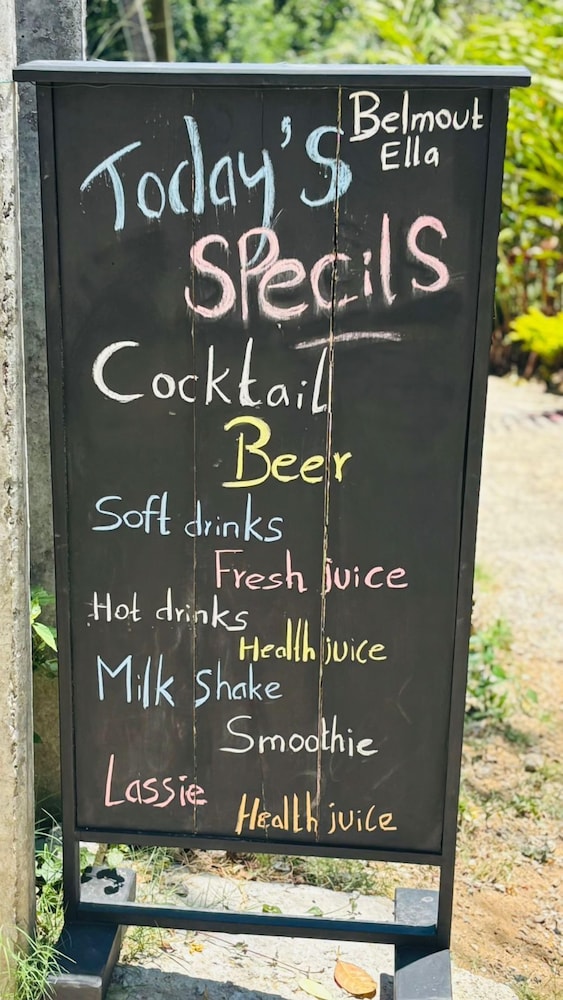 Belmout
Ella
Today's
Specils
Cocktail
Beer
Soft drinks
Fresh juice
Hot drinks
Health juice
Milk Shake
Smoothie
Lassie
Health juice